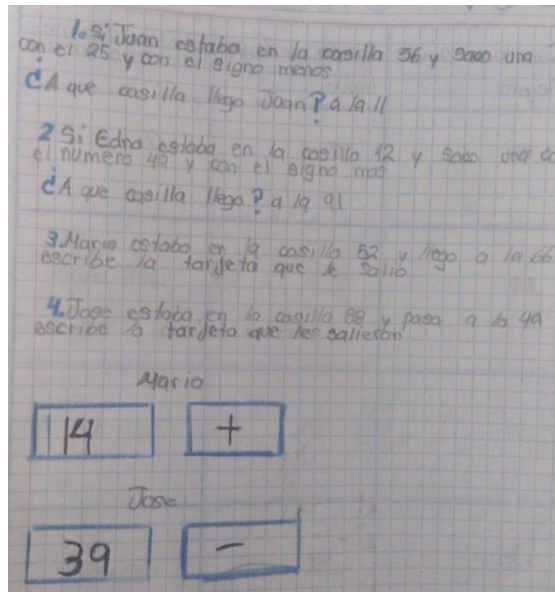 1. Si Juan estaba en la casilla 36 y saco una
con el 25 y con el signo menos
¿A que casilla llego Joan? a la 11
2 Si Edna estaba en la casilla 12 y saco una
el numero 49 y con el signo mas
¿A que casilla llego? a la 91
3. Mario estaba en la casilla 52 y llego a la 66
escribe la tarjeta que le salio
4. Jose estaba en la casilla 88 y paso a la 49
escribe la tarjeta que les salieron
Mario
14 +
Jose
39 -